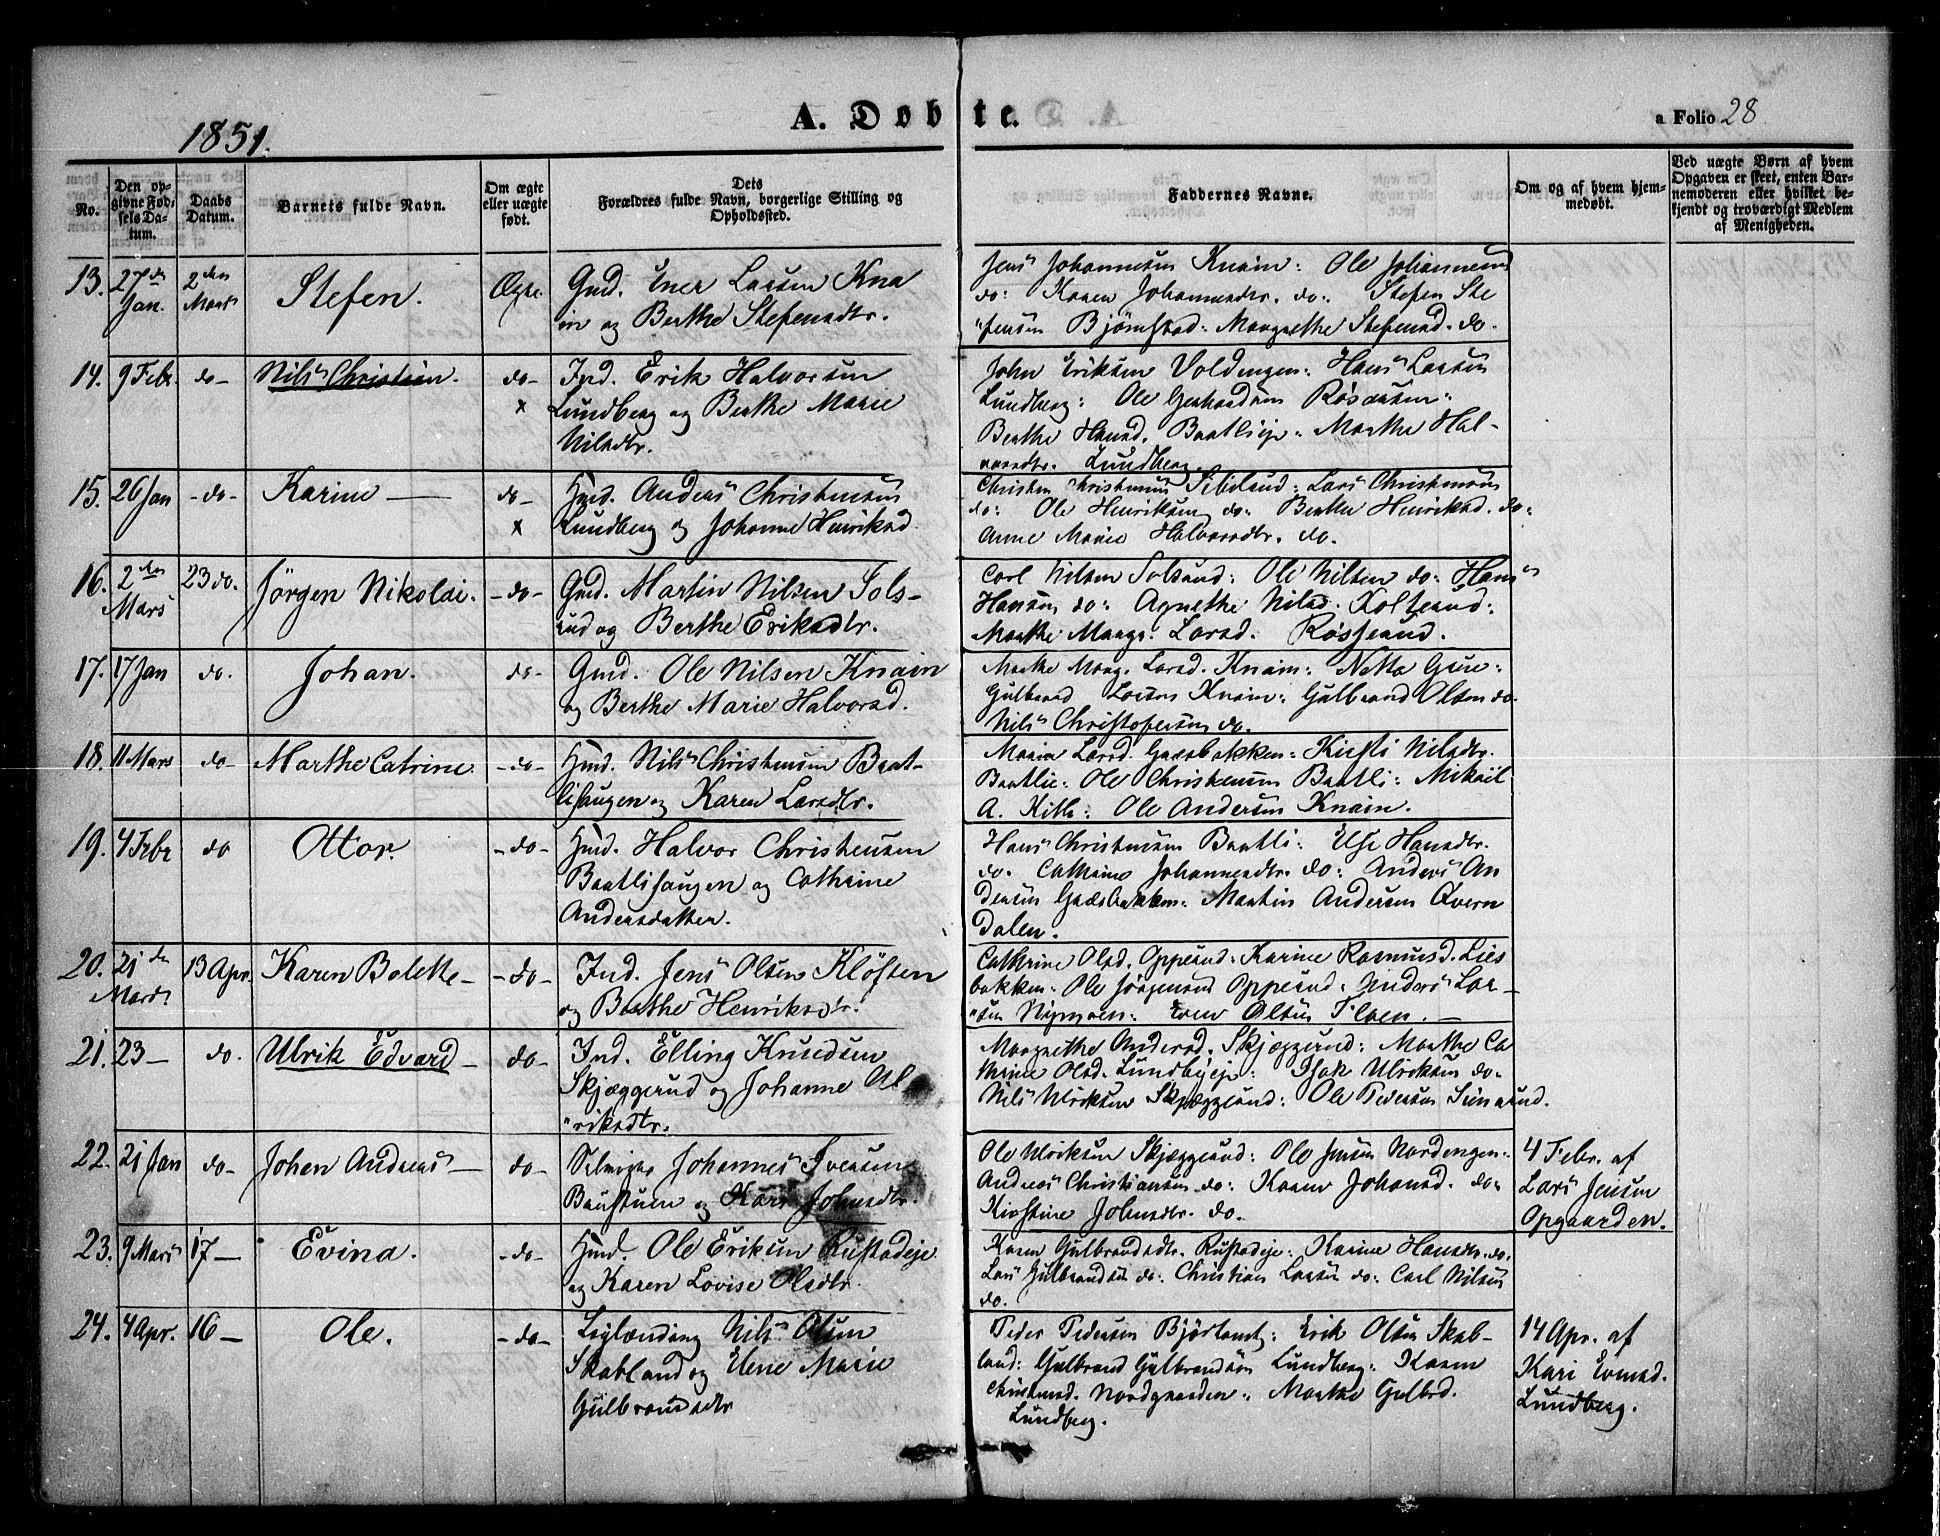 1851.
A. Døbte.
a Folio 28
No.
Den op-
givne Fød-
sels Da-
tum.
Daabs
Datum.
Barnets fulde Navn.
Om ægte
eller uægte
født.
Dets
Forældres fulde Navn, borgerlige Stilling og
Opholdssted.
Faddernes Navne.
Om og af hvem hjem-
medøbt.
Ved uægte Børn af hvem
Opgaven er skeet, enten Bar-
nemoderen eller hvilket be-
kjendt og troværdigt Medlem
af Menigheden.
13. 27de Jan. 2den Mars Stefen. Ægte.
Gmd. Iver Larsen Kna
in og Berthe Stefensdtr.
Jens Johannesen Knain: Ole Johannesen
do: Karen Johannesdtr. do: Stefen Ste
fensen Bjørnstad: Margrethe Stefensd. do.
14. 9 Febr. do- Nils Christian. do-
Ind. Erik Halvorsen
Lundberg og Berthe Marie
Nilsdtr.
John Eriksen Voldengen: Hans Larsen
Lundberg: Ole
Berthe Hansd. Baatlieje: Marthe Hal-
vorsdtr. Lundberg.
15. 26 Jan -do- Karine do-
Hmd. Anders Christensen
Lundberg og Johanne Henriksd.
Christen Christensen: Lars Christensen
do: Ole Henriksen do: Berthe Henriksd. do:
Anne Marie Halvorsdtr. do.
16. 2den Mars 23 do. Jörgen Nikolai. -do-
Gmd. Martin Nilsen Fols-
rud og Berthe Eriksdtr.
Carl Nilsen: Ole Nilsen do: Hans
Hansen do: Agnethe Nilsd.
Marthe Marg. Larsd.
17. 17 Jan do. Johan. do-
Gmd. Ole Nilsen Knain
og Berthe Marie Halvorsd.
Marthe Marg. Larsd. Knain:
Gulbrand Larsen Knain: Gulbrand Olsen do.
Nils Christofersen do.
18. 11 Mars do- Marthe Catrine. -do-
Hmd. Nils Christensen Baat-
lihaugen og Karen Larsdtr.
Maria Larsd. Gaasbakken: Kirsti Nilsdtr.
Baatlie: Ole Christensen Baatli: Mikail
A. Kith: Ole Andersen Knain.
19. 4 Febr do Ottar. -do-
Hmd. Halvor Christensen
Baatlihaugen og Cathrine
Andersdatter.
Hans Christensen Baatli: Else Hansdtr.
do. Cathrine Johannesdtr. do: Anders An
dersen Gaasbakken: Martin Andersen Qvern
dalen.
20. 21de Mars 13 Apr. Karen Bolette- -do-
Ind. Jens Olsen Klöften
og Berthe Henriksdtr.
Cathrine Olsd. Opperud: Karine Rasmusd. Lies
bakken: Ole Jörgensen Opperud: Anders Lar-
sen Nymoen: Iver Olsen Floen.
21. 23- do. Ulrik Edvard- do-
Ind. Elling Knudsen
Skjæggerud og Johanne Ul-
riksdtr.
Margrethe Andersd. Skjæggerud: Marthe Ca
thrine Olsd. Lundbyeje: Isak Ulriksen do-
Nils Ulriksen Skjæggerud: Ole Pedersen Simerud.
22. 21 Jan do- Johan Andreas- do-
Johannes Iversen
Baustuen og Kari Johnsdtr.
Ole Ulriksen Skjæggerud: Ole Jensen Nordengen:
Andreas Christiansen do: Karen Johansd. do:
Kirstine Johnsdtr. do.
4 Febr. af
Lars Jensen
Opgaarden.
23. 9 Mars 17- Evina. -do-
Hmd. Ole Eriksen Rustadeje
og Karen Lovise Olsdtr.
Karen Gulbrandsdtr. Rustadeje: Karine Hansdtr. do.
Lars Gulbrandsen do: Christian Larsen do: Carl Nilsen
do.
24. 4 Apr. 16- Ole. -do-
Leglænding Nils Olsen
Skabland og Elene Marie
Gulbrandsdtr
Peder Pedersen: Erik Olsen Skab-
land: Gulbrand Gulbrandsen Lundberg: Karen
Christensd. Nordgaarden: Marthe Gulbrd.
Lundberg.
14 Apr. af
Kari
Lundberg.